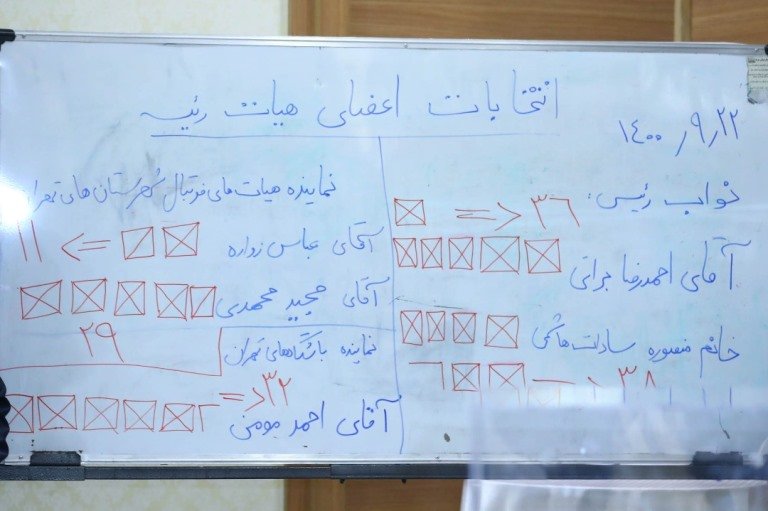 انتخابات اعضای هیات رئیسه
۱۴۰۰٫۹٫۲۲
نواب رئیس:
۳۶
آقای احمدرضا براتی
خانم منصوره سادات هاشمی
۳۸
نماینده هیات های فوتبال شهرستان های تهران
آقای عباس زواره
۱۱
آقای مجید محمدی
۲۹
نماینده باشگاههای تهران
۳۲
آقای احمد مومنی